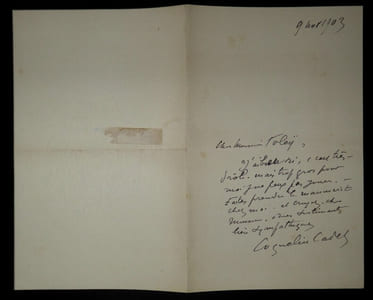 9 août 1903
Cher Monsieur Foleÿ,
J'ai lu ceci, c'est très
drôle. mais trop gros pour
moi, je ne peux pas jouer. —
Faites prendre le manuscrit
chez moi. et croyez, cher
Monsieur, à mes sentiments
bien sympathiques
Coquelin Cadet